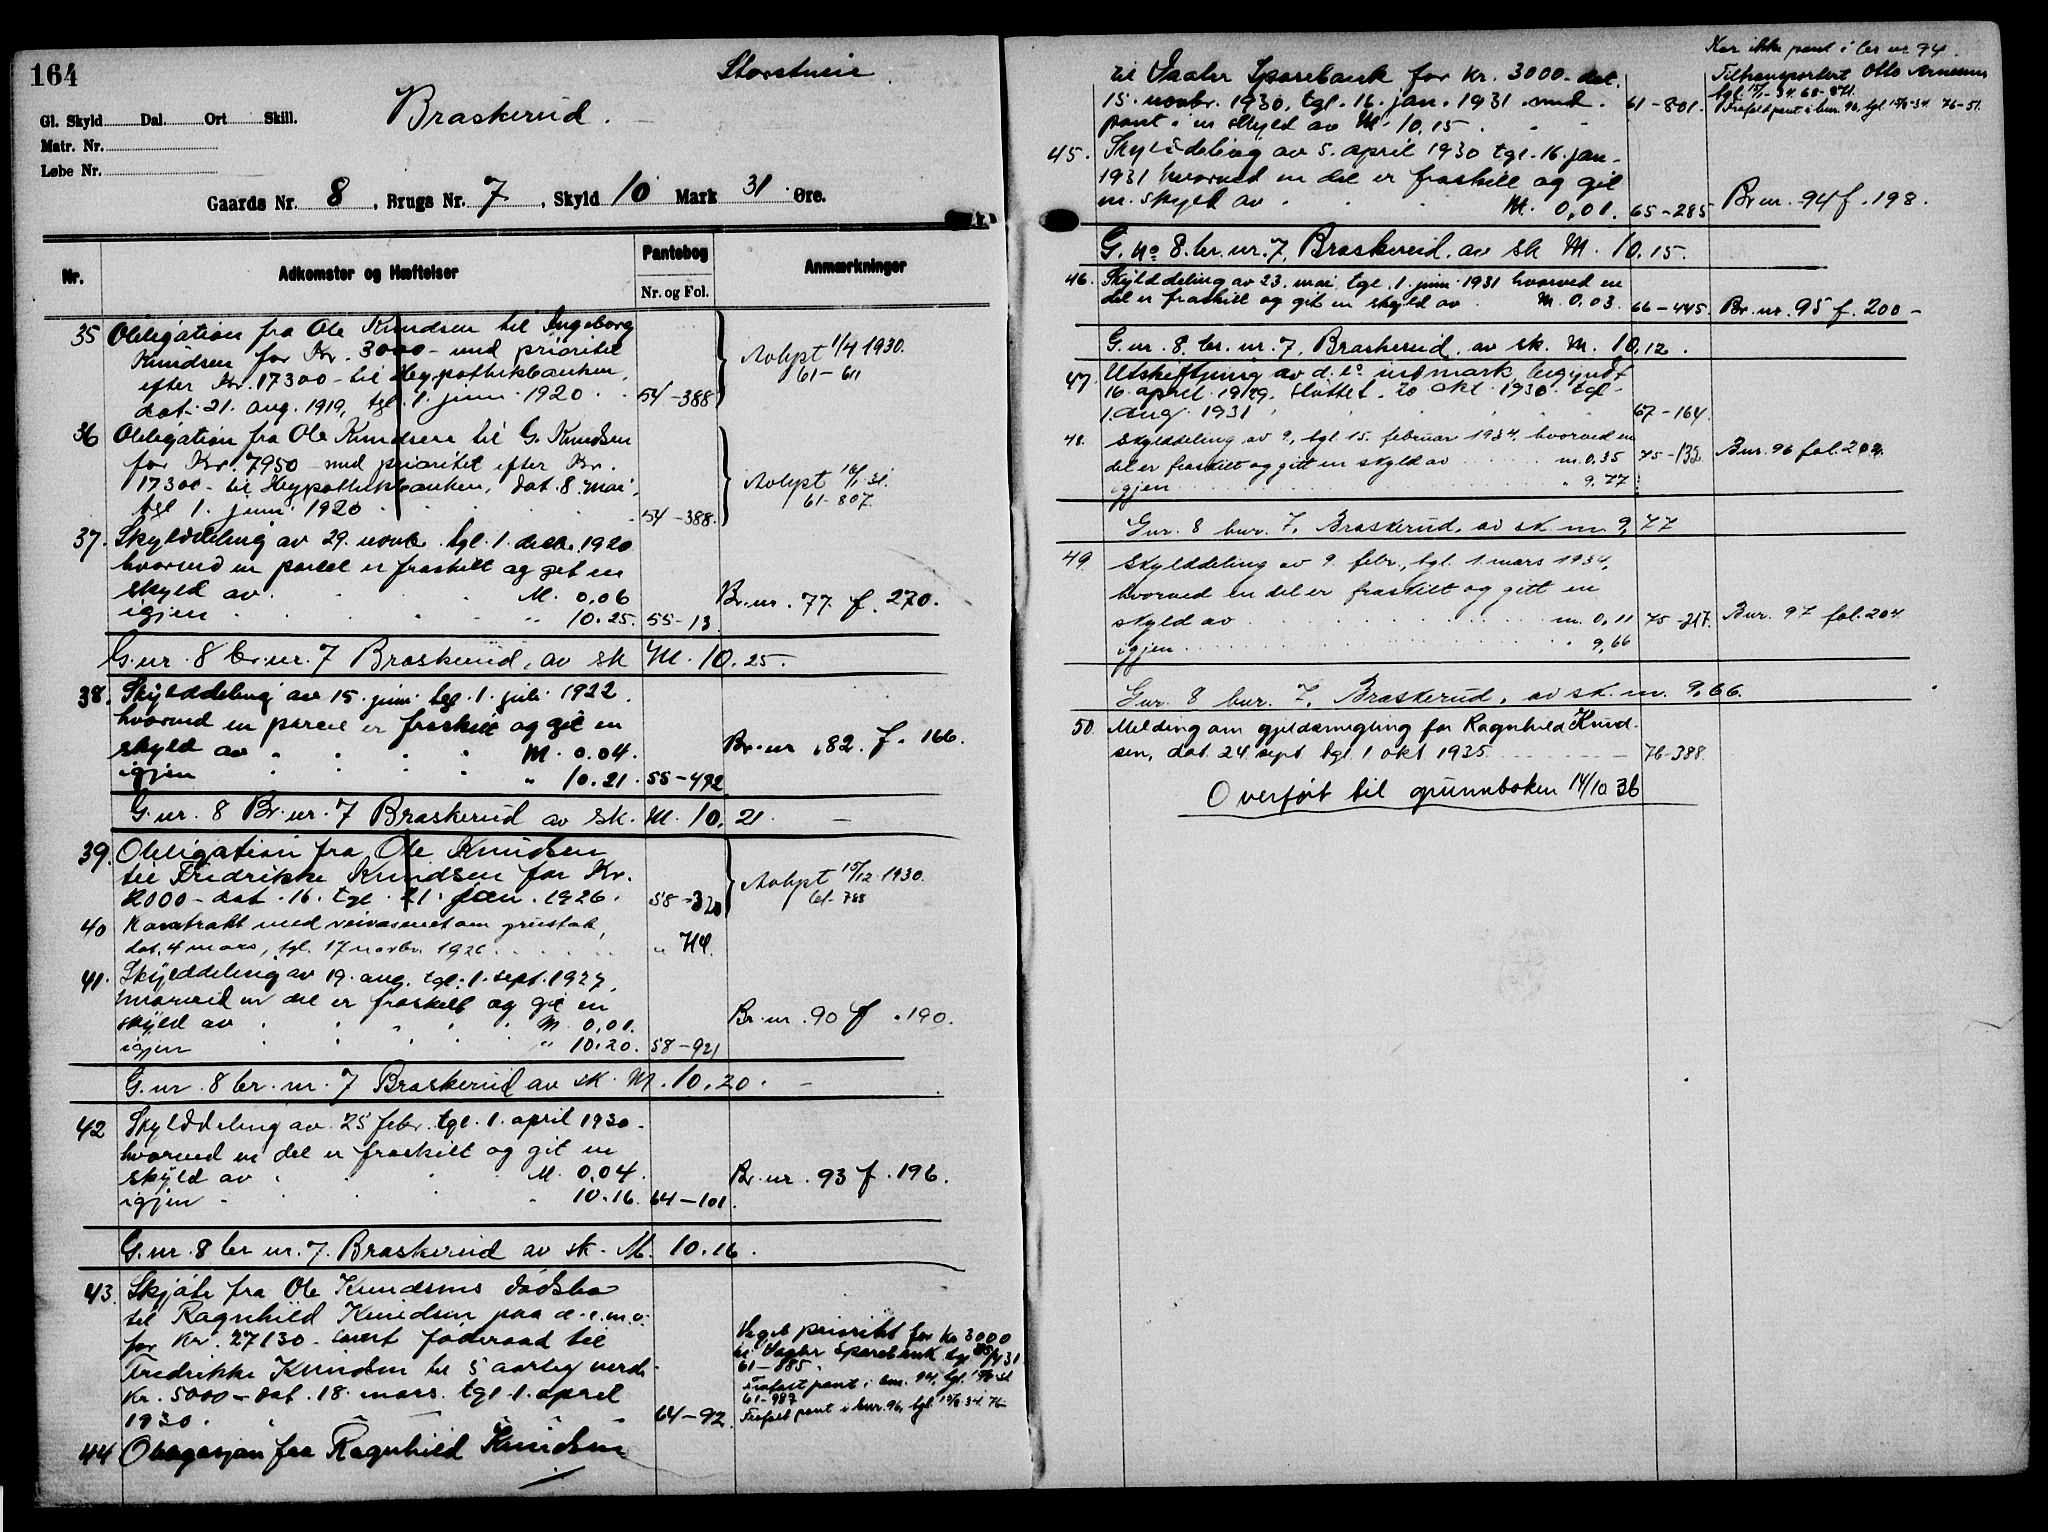 164
Braskerud.
Gl. Skyld Dal. Ort Skill.
Matr. Nr.
Løbe Nr.
Gaards Nr. 8, Brugs Nr. 7, Skyld 10 Mark 31 Øre.
Nr. Adkomster og Hæftelser Pantebog Anmærkninger
Nr. og Fol.
35 Obligation fra Ole Knudsen til Ingeborg
Knudsen for Kr. 3000 - med prioritet
efter Kr. 17300 - til Hypothekbanken,
dat. 21. aug. 1919, tgl. 1. juni 1920. 54-388
Avlyst 1/4 1930.
61-61
36 Obligation fra Ole Knudsen til G. Knudsen
for Kr. 7950 - med prioritet efter Kr.
17300 - til Hypothekbanken, dat. 8. mai,
tgl 1. juni 1920 54-388.
Avlyst 16/1 31.
61-807.
37. Skylddeling av 29. novbr. tgl. 1. decbr. 1920
hvorved en parcel er fraskilt og git en
skyld av M. 0,06
igjen " 10.25. 55-13.
Br.nr. 77. f. 270.
G.nr. 8 br.nr. 7 Braskerud, av sk M. 10.25.
38. Skylddeling av 15. juni tgl. 1. juli 1922.
hvorved en parcel er fraskilt og git en
skyld av M. 0.04.
igjen " 10.21. 55-492
Br.nr. 82. f. 166.
G.nr. 8 Br.nr. 7 Braskerud av sk. M. 10.21.
39. Obligation fra Ole Knudsen
til Fredrikke Knudsen for Kr.
2000 - dat. 16. tgl. 21. jan. 1926. 58-320
Avlyst 15/12 1930.
61-788
40 Kontrakt med veivæsenet om grustak,
dat. 4 mars, tgl. 17 novbr. 1926 " 714.
41. Skylddeling av 19. aug. tgl. 1. sept. 1927,
hvorved en del er fraskilt og git en
skyld av M. 0,01.
igjen " 10.20. 58-921
Br.nr. 90 f. 190.
G.nr. 8 br.nr. 7 Braskerud av sk. M. 10,20.
42 Skylddeling av 25 febr. tgl. 1. april 1930.
hvorved en del er fraskilt og git en
skyld av M. 0,04.
igjen 10.16. 64-101.
Br.nr. 93 f. 196.
G.nr. 8 br nr. 7. Braskerud av sk. M. 10.16.
43. Skjøte fra Ole Knudsens dødsbo
til Ragnhild Knudsen paa d.e.m.o.
for Kr. 27130 - samt føderaad til
Fredrikke Knudsen til 5 aarlig verdi
Kr. 5000 - dat. 18. mars. tgl. 1. april
1930. 64-92.
Veget prioritet for Kr 3000
til Vaaler Sparebank tgl 31
61-885.
Frafalt pant i bnr. 94, tgl.
61-987
Frafalt pant i bnr. 96, tgl. 76-
44 Obligasjon fra Ragnhild Knudsen
til Vaaler Sparebank for kr. 3000 - dat.
15. novbr. 1930, tgl. 16. jan. 1931 med 61-801.
pant i en skyld av M. 10,15.
Har ikke pant i br nr 94.
Tiltransportert Otto Arnesen
Frafalt pant i bnr. 96, tgl 76-51.
45. Skylddeling av 5. april 1930 tgl. 16. jan.
1931 hvorved en del er fraskilt og git
en skyld av M. 0,01. 65-285
Br.nr. 94 f. 198.
G. no 8. br.nr. 7. Braskerud. av sk M. 10.15.
46. Skylddeling av 23. mai, tgl. 1. juni 1931 hvorved en
del er fraskilt og git en skyld av M. 0.03. 66-445.
Br.nr. 95 f. 200 -
G.nr. 8. br.nr. 7. Braskerud. av sk. M. 10,12.
47. Utskiftning av d.e. utmark, begyndt
16. april 1929, sluttet 20 okt 1930 tgl.
1. aug. 1931 67-164.
48. Skylddeling av 9, tgl 15. februar 1934, hvorved en
del er fraskilt og gitt en skyld av m. 0,35 75-132.
igjen " 9,77
Bnr. 96 fol. 202.
Gnr. 8 bnr. 7. Braskerud, av sk m. 9,77
49. Skylddeling av 9. febr., tgl. 1. mars 1934,
hvorved en del er fraskilt og gitt en
skyld av m. 0,11 75-217.
igjen " 9,66
Bnr. 97 fol. 204
Gnr. 8 bnr. 7. Braskerud, av sk. m. 9,66.
50. Melding om gjeldsmegling for Ragnhild Knud-
sen, dat. 24 sept tgl 1 okt 1935. 76-388.
Overført til grunnboken 14/10 36